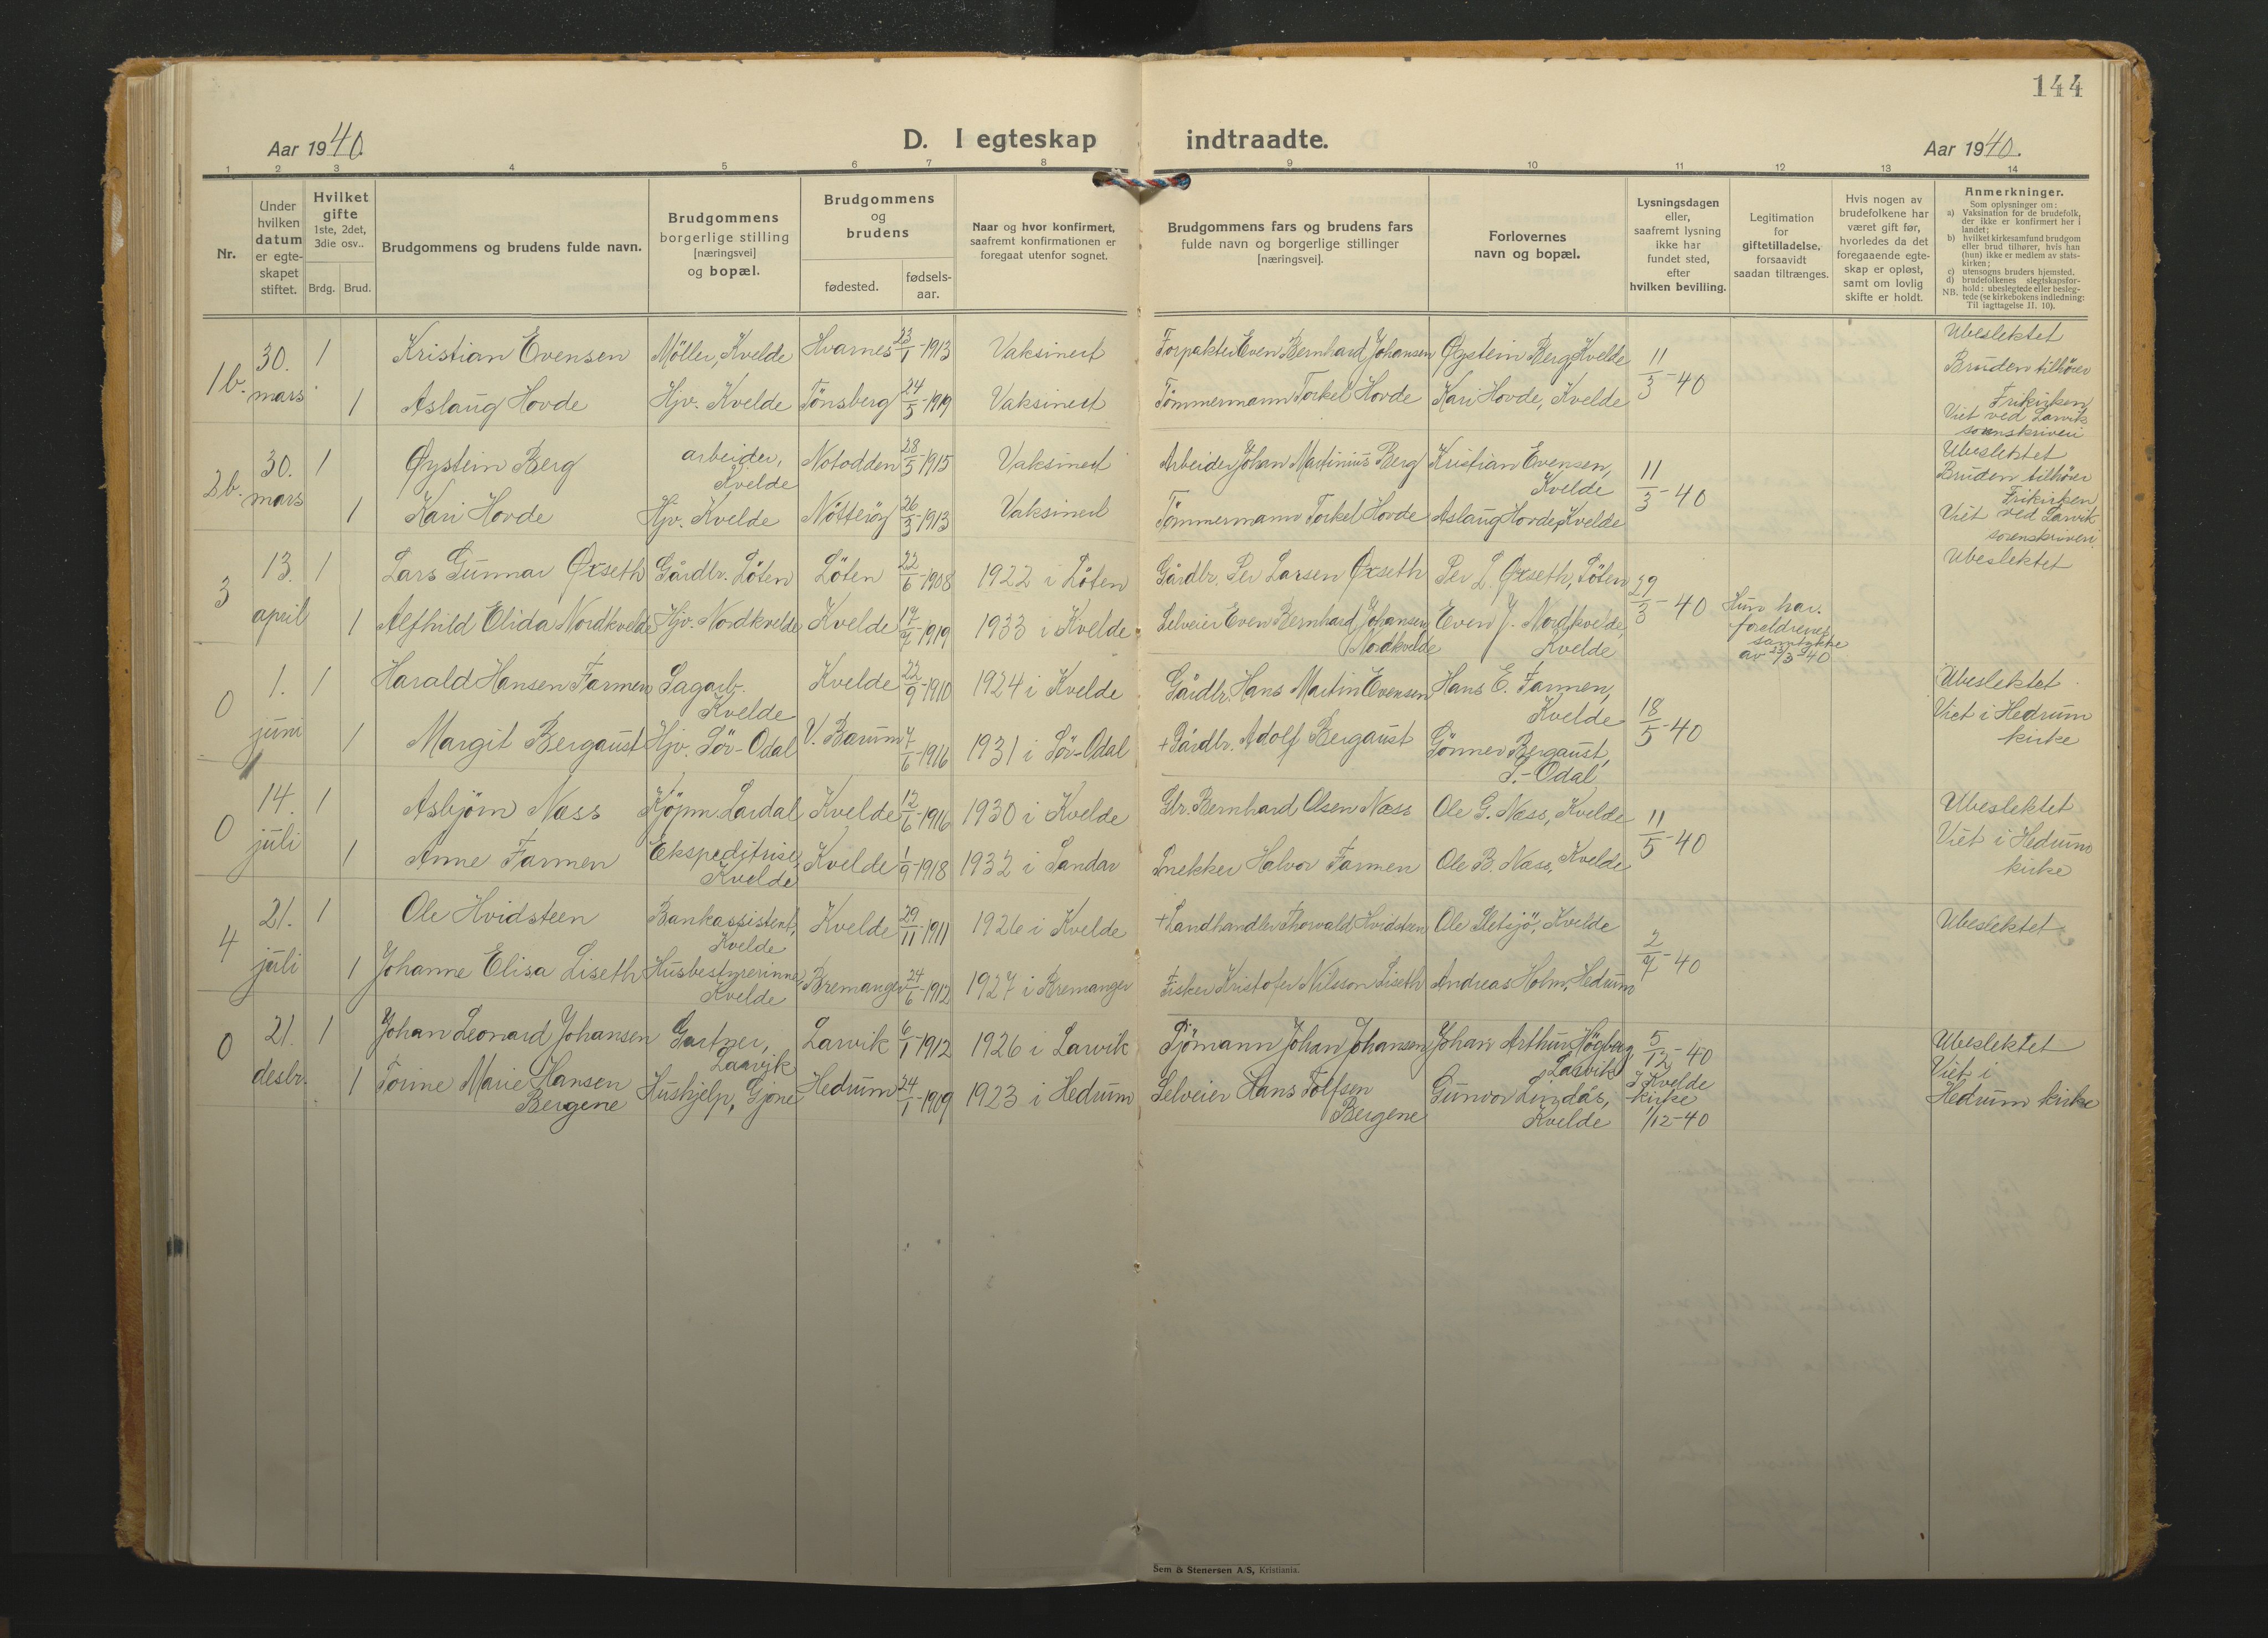 144
Aar 1940.
D. I egteskap indtraadte.
Aar 1940.
1 2 3 4 5 6 7 8 9 10 11 12 13 14
Nr.
Under hvilken datum er egteskapet stiftet.
Hvilket gifte 1ste, 2det, 3die osv..
Brdg. Brud.
Brudgommens og brudens fulde navn.
Brudgommens borgerlige stilling [næringsvei] og bopæl.
Brudgommens og brudens
fødested.
fødsels-aar.
Naar og hvor konfirmert, saafremt konfirmationen er foregaat utenfor sognet.
Brudgommens fars og brudens fars fulde navn og borgerlige stillinger [næringsvei].
Forlovernes navn og bopæl.
Lysningsdagen eller, saafremt lysning ikke har fundet sted, efter hvilken bevilling.
Legitimation for giftetilladelse, forsaavidt saadan tiltrænges.
Hvis nogen av brudefolkene har været gift før, hvorledes da det foregaaende egteskap er opløst, samt om lovlig skifte er holdt.
Anmerkninger.
Som oplysninger om:
a) Vaksination for de brudefolk, der ikke er konfirmert her i landet;
b) hvilket kirkesamfund brudgom eller brud tilhører, hvis han (hun) ikke er medlem av statskirken;
c) utensogns bruders hjemsted.
d) brudefolkenes slegtskapsforhold: ubeslegtede eller beslegtede (se kirkebokens indledning: Til lagttagelse II. 10).
NB.
1b. 30. mars 1 Kristian Evensen Möller, Kvelde Hvarnes 23/1-1913 Vaksinert Forpakter Even Bernhard Johansen Øystein Berg, Kvelde 11/3-40 Ubeslektet
1 Aslaug Hovde Hjv. Kvelde Tönsberg 24/5-1919 Vaksinert Tömmermann Torkel Hovde Kari Hovde, Kvelde Bruden tilhörer Frikirken
Viet ved Larvik sorenskriveri
2b. 30. mars 1 Øystein Berg arbeider, Kvelde Notodden 28/5-1915 Vaksinert Arbeider Johan Martinius Berg Kristian Evensen, Kvelde 11/3-40 Ubeslektet
1 Kari Hovde Hjv. Kvelde Nötteröy 26/3-1913 Vaksinert Tömmermann Torkel Hovde Aslaug Hovde, Kvelde Bruden tilhörer Frikirken
Viet ved Larvik sorenskriveri
3 13. april 1 Lars Gunnar Øxseth Gårdbr. Löten Löten 22/6-1908 1922 i Löten Gårdbr. Per Larsen Øxseth Per L. Øxseth, Löten 29/3-40 Ubeslektet
1 Alfhild Elida Nordkvelde Hjv. Nordkvelde Kvelde 1919 1933 i Kvelde Selveier Even Bernhard Johansen Nordkvelde Even J. Nordkvelde, Kvelde Hun har foreldrenes samtykke av 23/3-40
0 1. juni 1 Harald Hansen Farmen Sagarb. Kvelde Kvelde 22/9-1910 1924 i Kvelde Gårdbr. Hans Martin Evensen Hans E. Farmen, Kvelde 18/5-40 Ubeslektet
1 Margit Bergaust Hjv. Sör-Odal V. Bærum 7/6-1916 1931 i Sör-Odal +Gårdbr. Adolf Bergaust Gönner Bergaust, S.-Odal Viet i Hedrum kirke
0 14. juli 1 Asbjörn Næss Kjöpm. Lardal Kvelde 12/6-1916 1930 i Kvelde Gbr. Bernhard Olsen Næss Ole G. Næss, Kvelde 11/5-40 Ubeslektet
1 Anne Farmen Ekspeditrise, Kvelde Kvelde 1/9-1918 1932 i Sandar Snekker Halvor Farmen Ole B. Næss, Kvelde Viet i Hedrum kirke
4 21. juli 1 Ole Hvidsteen Bankassistent, Kvelde Kvelde 29/11-1911 1926 i Kvelde +Landhandler Thorvald Hvidsteen Ole Sletsjö, Kvelde 2/7-40 Ubeslektet
1 Johanne Elisa Liseth Husbestyrerinne, Kvelde Bremanger 24/6-1912 1927 i Bremanger Fisker Kristofer Nilsson Liseth Andreas Holm, Hedrum
0 21. desbr. 1 Johan Leonard Johansen Gartner, Larvik Larvik 6/1-1912 1926 i Larvik Sjömann Johan Johansen Johan Arthur Högberg, Larvik 5/12-40 Ubeslektet
1 Torine Marie Hansen Bergene Hushjelp, Gjone Hedrum 24/1-1909 1923 i Hedrum Selveier Hans Tolfsen Bergene Gunvor Lindås, Kvelde I Kvelde kirke 1/12-40 Viet i Hedrum kirke
Sem & Stenersen A/S, Kristiania.